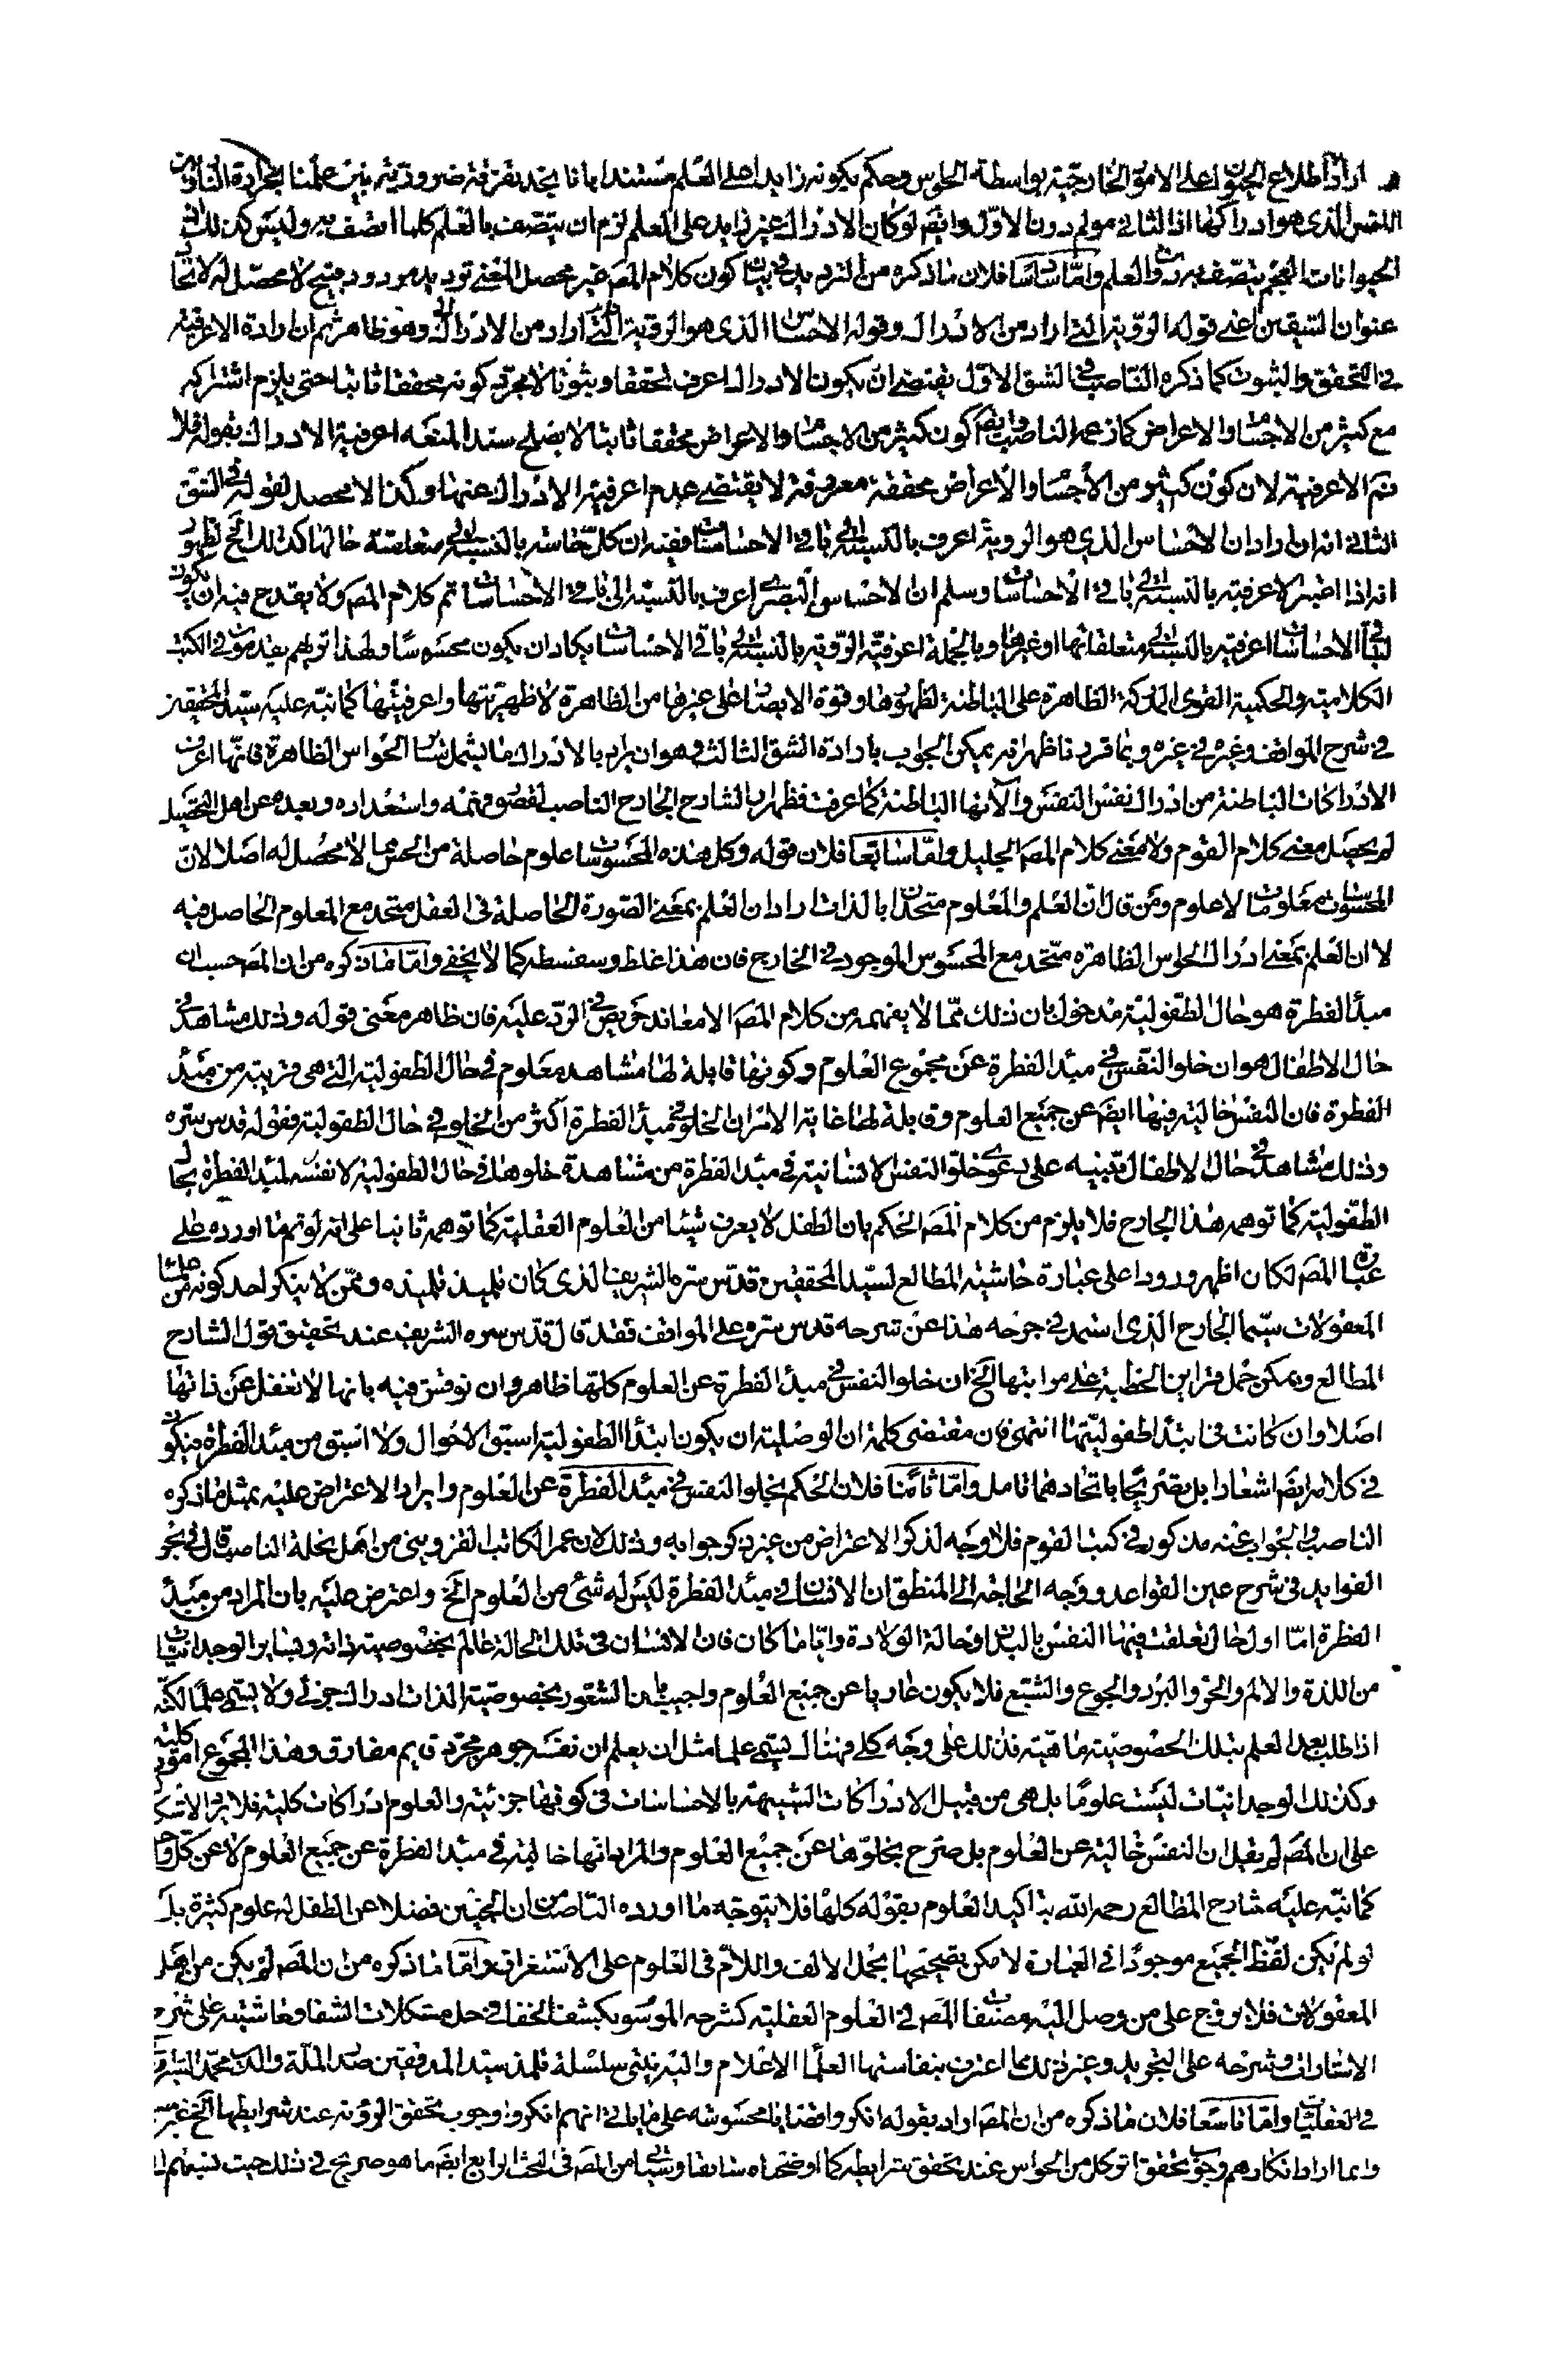 اراد اطلاع الحيوان على الامور الخارجية بواسطة الحواس وحكم بكونه زايدا على العلم مستندا بانا نجد تفرقة ضرورية بين علمنا بحرارة النار وبين
اللمس الذي هو ادراكها اذ الثاني مولم دون الاول وايضم لو كان الادراك غير زايد على العلم لزم ان يتصف بالعلم كلما اتصف به وليس كذلك لان
الحيوانات العجم يتصف به دون العلم واما سادسا فلان ما ذكره من الترديد في بيان كون كلام المصم غير محصل المعنى ترديد مردود قبيح لا محصل له لاتحاد
عنوان الشقين اعني قوله الروية التي اراد من الادراك وقوله الاحساس الذي هو الروية التي اراد من الادراك وهو ظاهر ثم ان ارادة الاعرفية
في التحقق والثبوت كما ذكره الناصب في الشق الاول يقتضي ان يكون الادراك اعرف تحققا وثبوتا لا مجرد كونه محققا ثابتا حتى يلزم اشتراكه
مع كثير من الاجسام والاعراض كما زعمه الناصب وايضم كون كثير من الاجسام والاعراض محققا ثابتا لا يصلح سندا لمنعه اعرفية الادراك بقوله فلا
نم الاعرفية لان كون كثير من الاجسام والاعراض محققة معروفة لا يقتضي عدم اعرفية الادراك عنها وكذا لا محصل لقوله في الشق
الثاني انه ان اراد ان الاحساس الذي هو الروية اعرف بالنسبة الى باقي الاحساسات ففيه ان كل حاسة بالنسبة الى متعلقة حالها كذلك الخ لظهور
انه اذا اعتبر الاعرفية بالنسبة الى باقي الاحساسات وسلم ان الاحساس البصري اعرف بالنسبة الى باقي الاحساسات تم كلام المصم ولا يقدح فيه ان يكون
لباقي الاحساسات اعرفية بالنسبة الى متعلقاتها او غيرها وبالجملة اعرفية الروية بالنسبة الى باقي الاحساسات يكاد ان يكون محسوسا ولهذا تريهم يقدمون في الكتب
الكلامية والحكمية القوى المدركة الظاهرة على الباطنة لظهورها وقوة الابصار على غيرها من الظاهرة لاظهريتها واعرفيتها كما نبه عليه سيد المحققين
في شرح المواقف وغيره في غيره وبما قررنا ظهر انه يمكن الجواب بارادة الشق الثالث وهو ان يراد بالادراك ما يشمل ساير الحواس الظاهرة فانها اعرف
الادراكات الباطنة من ادراك نفس النفس والاتها الباطنة كما عرفت فظهر ان الشارح الجارح الناصب لقصور فهمه واستعداده وبعده عن اهل التحصيل
لم يحصل معنى كلام القوم ولا معنى كلام المصم الجليل واما سابعا فلان قوله وكل هذه المحسوسات علوم حاصلة من الحس مما لا محصل له اصلا لان
المحسوسات معلومات لا علوم ومن قال ان العلم والمعلوم متحدان بالذات اراد ان العلم بمعنى الصورة الحاصلة في العقل متحد مع المعلوم الحاصل فيه
لا ان العلم بمعنى ادراك الحواس الظاهرة متحد مع المحسوس الموجود في الخارج فان هذا غلط وسفسطة كما لا يخفى واما ما ذكره من ان المصم حسب ان
مبدأ الفطرة هو حال الطفولية مدخول بان ذلك مما لا يفهمه من كلام المصم الا معاند حريص في الرد عليه فان ظاهر معنى قوله وذلك مشاهد في
حال الاطفال هو ان خلو النفس في مبدأ الفطرة عن مجموع العلوم وكونها قابلة لها مشاهد معلوم في حال الطفولية التي هي قريبة من مبدأ
الفطرة فان النفس خالية فيها ايضم عن جميع العلوم وقابلة لها غاية الامر ان الخلو في مبدأ الفطرة اكثر من الخلو في حال الطفولية فقوله قدس سره
وذلك مشاهد في حال الاطفال تنبيه على دعوى خلو النفس الانسانية في مبدأ الفطرة من مشاهدة خلوها في حال الطفولية لا تفسير لمبدأ الفطرة بحال
الطفولية كما توهمه هذا الجارح فلا يلزم من كلام المصم الحكم بان الطفل لا يعرف شيئا من العلوم العقلية كما توهمه ثانيا على انه لو تم ما اورده على
عبارة المصم لكان اظهر ورودا على عبارة حاشية المطالع لسيد المحققين قدس سره الشريف الذي كان تلميذ تلميذه وممن لا ينكر احد كونه من علماء
المعقولات سيما الجارح الذي استمد في جرحه هذا عن شرحه قدس سره على المواقف فقد قال قدس سره الشريف عند تحقيق قول الشارح
المطالع ويمكن حمل قراين الخطبة على مراتبها الخ ان خلو النفس في مبدأ الفطرة عن العلوم كلها ظاهر وان نوقش فيه بانها لا تغفل عن ذاتها
اصلا وان كانت في ابتداء طفوليتها انتهى فان مقتضى كلمة ان الوصلية ان يكون ابتداء الطفولية اسبق الاحوال ولا اسبق من مبدأ الفطرة فيكون
في كلامه ايضم اشعارا بل تصريحا باتحادهما تامل واما ثامنا فلان الحكم بخلو النفس في مبدأ الفطرة عن العلوم وايراد الاعتراض عليه بمثل ما ذكره
الناصب والجواب عنه مذكور في كتب القوم فلا وجه لذكر الاعتراض من غير ذكر جوابه وذلك لان عمر الكاتب القزويني من اهل نحلة الناصب قال في بحر
الفوايد في شرح عين القواعد ووجه الحاجة الى المنطق ان الانسان في مبدأ الفطرة ليس له شئ من العلوم الخ واعترض عليه بان المراد من مبدأ
الفطرة اما اول حال تعلقت فيها النفس بالبدن او حالة الولادة وايا ما كان فان الانسان في تلك الحالة عالم بخصوصية ذاته وبساير الوجدانيات
من اللذة والالم والحر والبرد والجوع والشبع فلا يكون عاريا عن جميع العلوم واجيب بان الشعور بخصوصية الذات ادراك جزئي ولا يسمى علما لكنه
اذا طلب بعد العلم بتلك الخصوصية ماهية فذلك على وجه كلي فهناك يسمى علما مثل ان يعلم ان نفسه جوهر مجرد قايم مفارق وهذا المجموع امور كلية
وكذلك الوجدانيات ليست علوما بل هي من قبيل الادراكات الشبيهة بالاحساسات في كونها جزئية والعلوم ادراكات كلية فلا يرد الاشكال
على ان المصم لم يقل ان النفس خالية عن العلوم بل صرح بخلوها عن جميع العلوم والمراد انها خالية في مبدأ الفطرة عن جميع العلوم لا عن كل واحد
كما نبه عليه شارح المطالع رحمه الله بتاكيد العلوم بقوله كلها فلا يتوجه ما اورده الناصب من ان الجنين فضلا عن الطفل له علوم كثيرة بل
لو لم يكن لفظ الجميع موجودا في العبارة لامكن تصحيحها بحمل الالف واللام في العلوم على الاستغراق واما ما ذكره من ان المصم لم يكن من اهل
المعقولات فلا يروج على من وصل اليه مصنفات المصم في العلوم العقلية كشرحه الموسوم بكشف الخفا في حل مشكلات الشفا وحاشيته على شرح
الاشارات وشرحه على التجريد وغير ذلك مما اعترف بنفاستها العلماء الاعلام واليه ينتهي سلسلة تلمذ سيد المدققين صدر الملة والدين محمد الشيرازي
في العقليات واما تاسعا فلان ما ذكره من ان المصم اراد بقوله انكروا قضايا محسوسة على ما ياتي انهم انكروا وجوب تحقق الروية عند شرايطها الخ غير مسلم
وانما اراد انكارهم وجوب تحقق اثر كل من الحواس عند تحقق شرايطه كما اوضحناه سابقا وسياتي من المصم في البحث الرابع ايضم ما هو صريح في ذلك حيث نسبهم